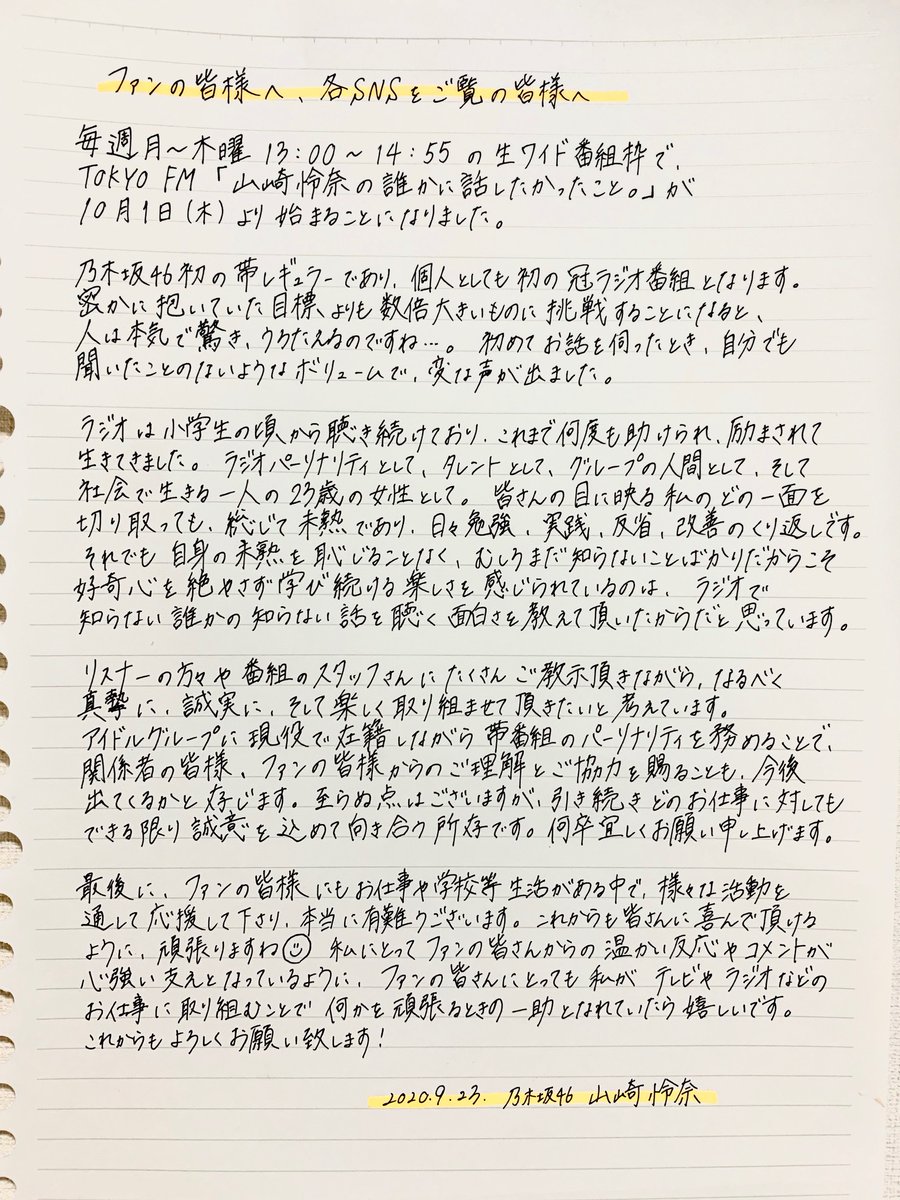 ファンの皆様へ、各SNSをご覧の皆様へ
毎週月～木曜 13:00～14:55の生ワイド番組枠で、
TOKYO FM「山崎怜奈の誰かに話したかったこと。」が
10月1日(木)より始まることになりました。
乃木坂46初の帯レギュラーであり、個人としても初の冠ラジオ番組となります。
密かに抱いていた目標よりも数倍大きいものに挑戦することになると、
人は本気で驚き、うろたえるのですね…。初めてお話を伺ったとき、自分でも
聞いたことのないようなボリュームで、変な声が出ました。
ラジオは小学生の頃から聴き続けており、これまで何度も助けられ、励まされて
生きてきました。ラジオパーソナリティとして、タレントとして、グループの人間として、そして
社会で生きる一人の23歳の女性として。皆さんの目に映る私のどの一面を
切り取っても、総じて未熟であり、日々勉強、実践、反省、改善のくり返しです。
それでも自身の未熟を恥じることなく、むしろまだ知らないことばかりだからこそ
好奇心を絶やさず学び続ける楽しさを感じられているのは、ラジオで
知らない誰かの知らない話を聴く面白さを教えて頂いたからだと思っています。
リスナーの方々や番組のスタッフさんにたくさんご教示頂きながら、なるべく
真摯に、誠実に、そして楽しく取り組ませて頂きたいと考えています。
アイドルグループに現役で在籍しながら帯番組のパーソナリティを務めることで、
関係者の皆様、ファンの皆様からのご理解とご協力を賜ることも、今後
出てくるかと存じます。至らぬ点はございますが、引き続きどのお仕事に対しても
できる限り誠意を込めて向き合う所存です。何卒宜しくお願い申し上げます。
最後に、ファンの皆様にもお仕事や学校等生活がある中で、様々な活動を
通して応援して下さり、本当に有難うございます。これからも皆さんに喜んで頂ける
ように、頑張りますね☺ 私にとってファンの皆さんからの温かい反応やコメントが
心強い支えとなっているように、ファンの皆さんにとっても私がテレビやラジオなどの
お仕事に取り組むことで何かを頑張るときの一助となれていたら嬉しいです。
これからもよろしくお願い致します！
2020.9.23. 乃木坂46 山崎怜奈